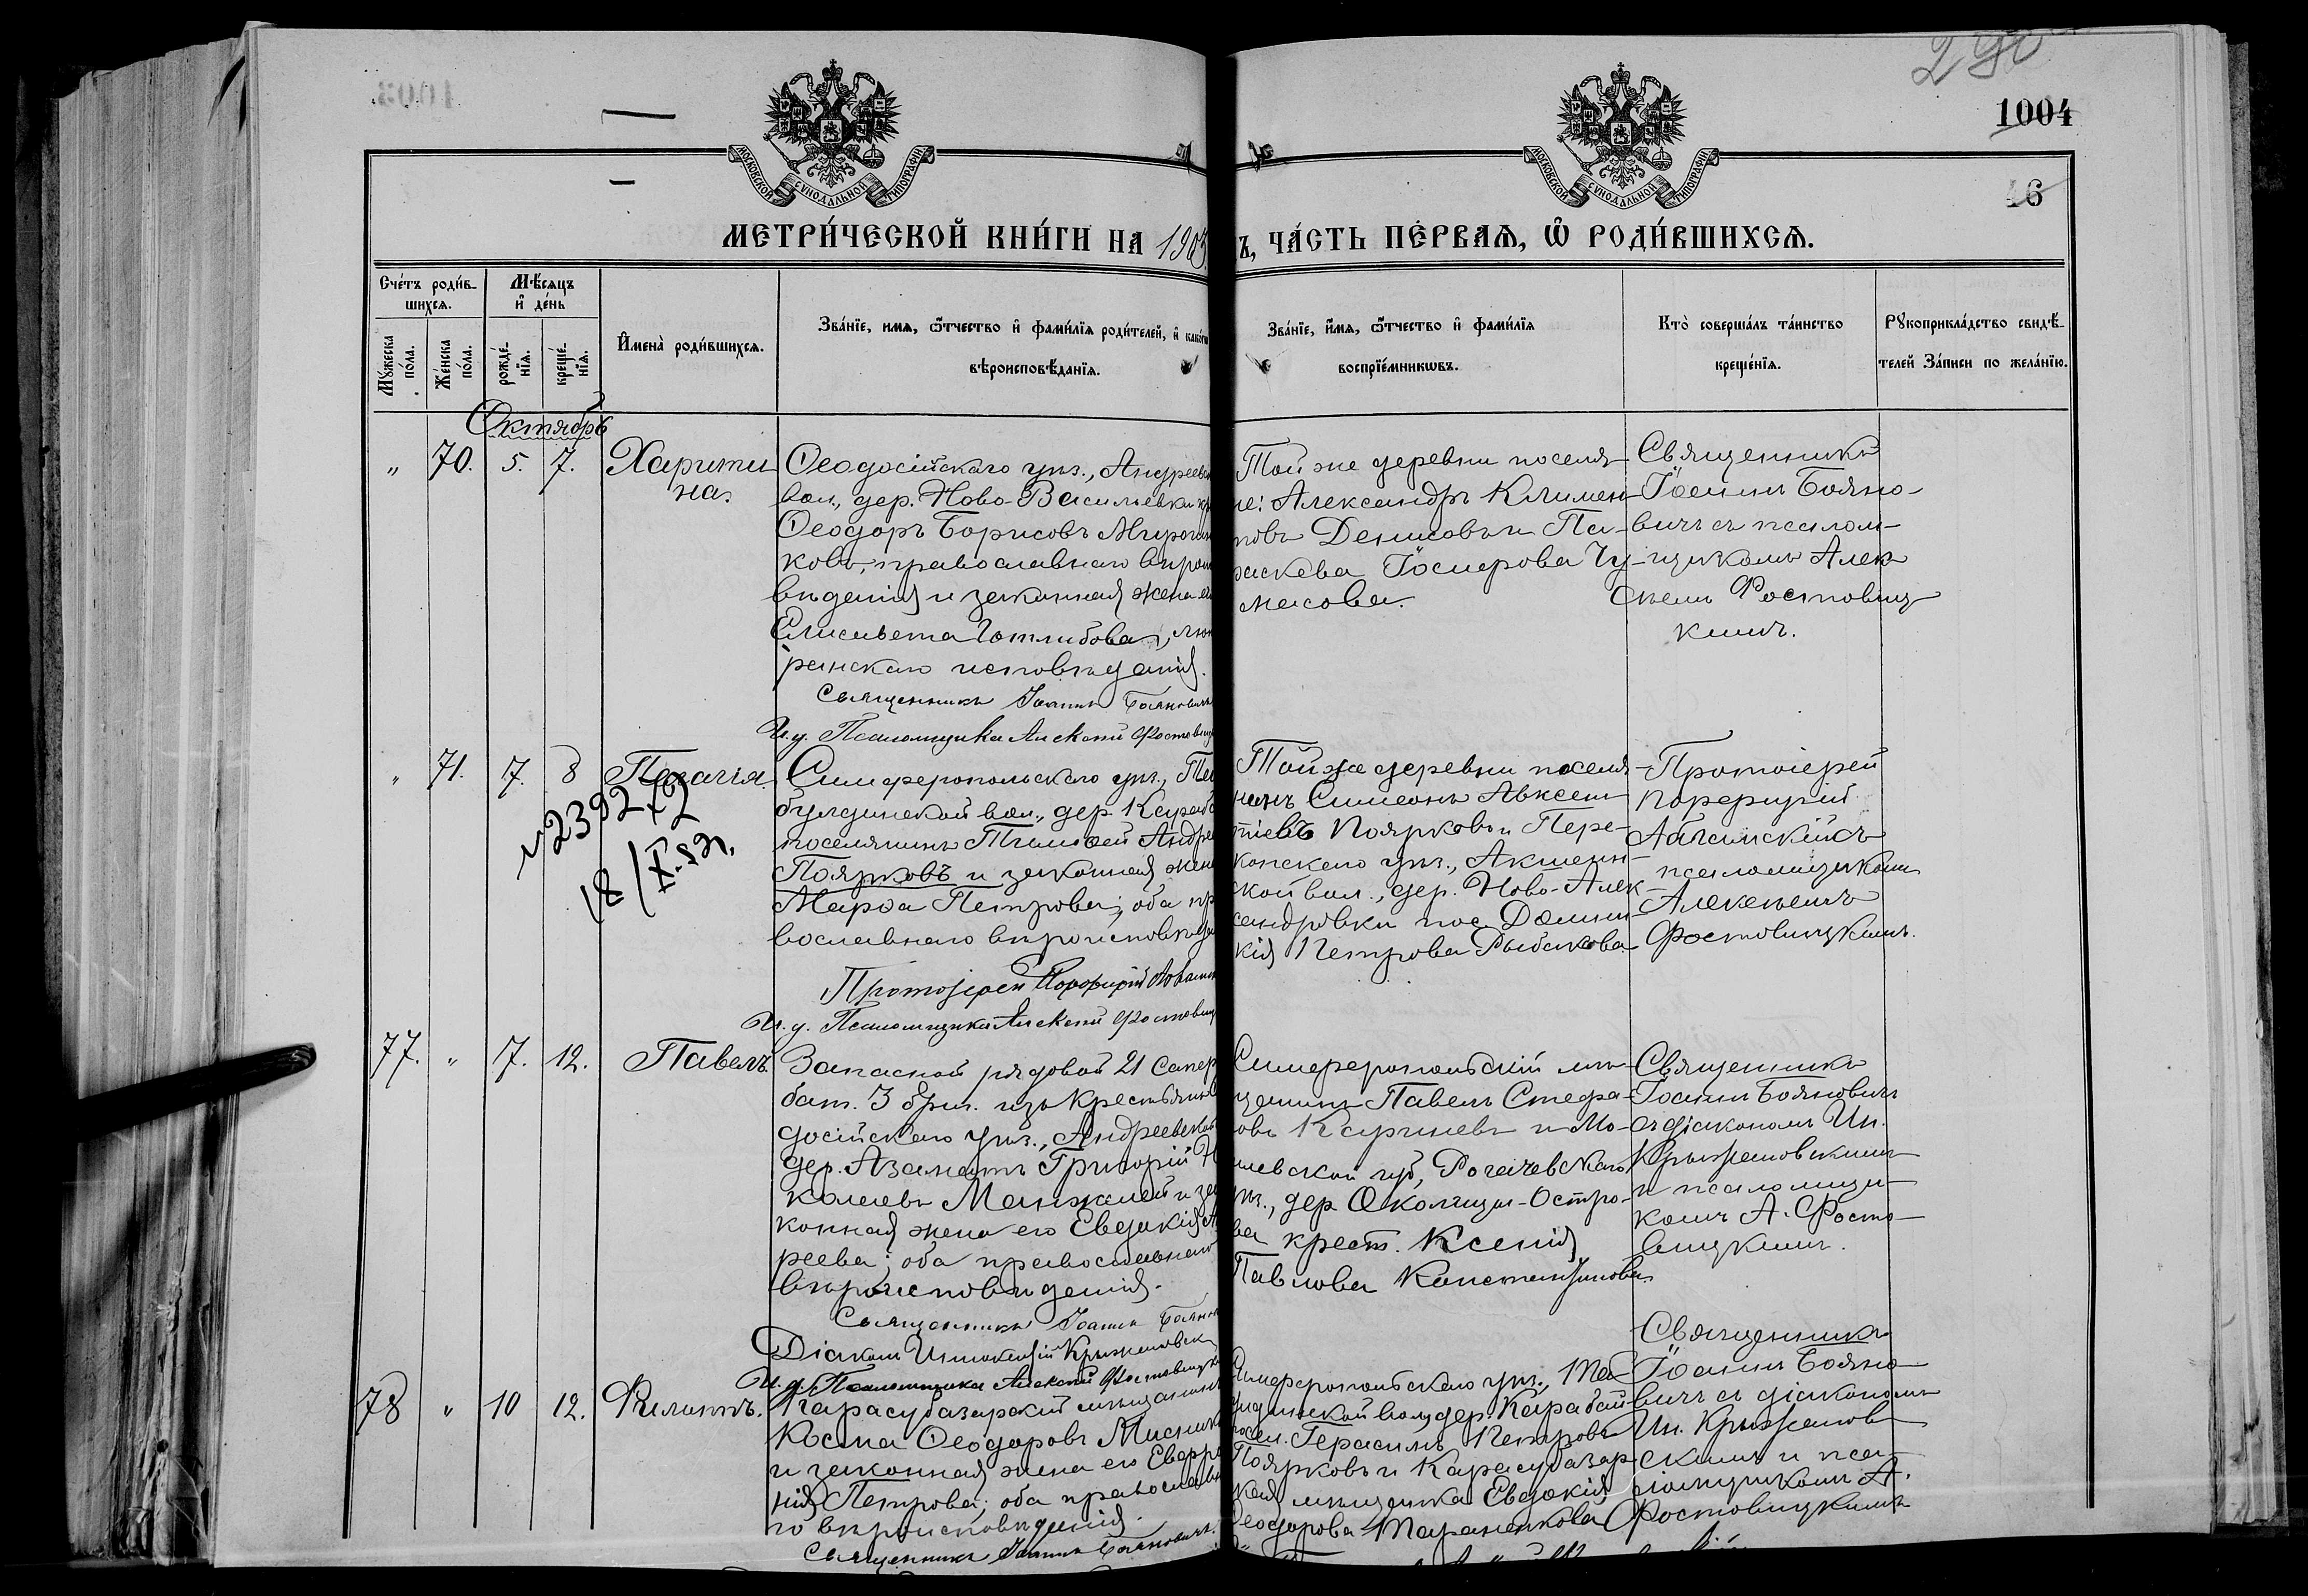 290
1004
16
МОСКОВСКОЙ СѴНОДАЛЬНОЙ ТИПОГРАФІИ
МОСКОВСКОЙ СѴНОДАЛЬНОЙ ТИПОГРАФІИ
МЕТРИ́ЧЕСКОЙ КНИ́ГИ НА 1903
Ъ, ЧА́СТЬ ПЕ́РВАѦ, Ѡ РОДИ́ВШИХСѦ.
Сче́тъ роди́в-
шихсѧ.
Мꙋ́жеска по́ла.
Же́нска по́ла.
Мѣ́сѧцъ и де́нь
рожде́нїѧ.
креще́нїѧ.
Имена̀ роди́вшихсѧ.
Зва́нїе, имѧ, ѻ҆тчество и фами́лїѧ роди́телей, и како́гѡ
вѣроисповѣ́данїѧ.
Зва́нїе, и́мѧ, ѻ҆тчество и фами́лїѧ
воспрїе́мникѡвъ.
Кто̀ соверша́лъ та́инство
креще́нїѧ.
Рꙋкоприкла́дство свидѣ́-
телей За́писи по жела́нїю.
Октябрь
" 70. 5. 7. Харити
на.
Ѳеодосійскаго уѣз., Андреевск
вол., дер. Ново-Васильевки кр
Ѳеодоръ Борисовъ Мирошн
ковъ, православнаго вѣроис
вѣданія и законная жена ег
Елисавета Готлибова, лют
ранскаго исповѣданія.
Священникъ Іоаннъ Бояновичъ
И. д. Псаломщика Алексѣй Фостовиц
Той же деревни поселя
не: Александръ Климен
товъ Денисовъ и Па-
раскева Іосифова Чу-
макова.
Священникъ
Іоаннъ Бояно-
вичъ съ псалом-
щикомъ Алек
сѣемъ Фостовиц
кимъ.
" 71. 7. 8 Пелагія.
Симферопольскаго уѣз., Таб
булдинской вол., дер. Караба
поселянинъ Тимоѳей Андре
Поярковъ и законная жена
Марѳа Петрова; оба пр
вославнаго вѣроисповѣда
Протоіерей Порфирій
И. д. Псаломщика Алексѣй Фостовиц
18/X-52.
Той же деревни поселя
нинъ Симеонъ Авксен
тіевъ Поярковъ и Пере-
копскаго уѣз., Акшеин-
ской вол., дер. Ново-Алек-
сандровки пос. Домни-
кія Петрова Рыбакова
Протоіерей
Порфирій
съ
псаломщикомъ
Алексѣемъ
Фостовицкимъ.
77. " 7. 12. Павелъ.
Запасной рядовой 21 Сапер
бат. 3 бриг. изъ крестьянъ
досійскаго уѣз., Андреевской
дер. Азаматъ Григорій Н
колаевъ Манжилей и за
конная жена его Евдокія А
реева; оба православнаго
вѣроисповѣданія.
Священникъ Іоаннъ Боянов
Діаконъ Иннокентій Крыжановск
И. д. Псаломщика Алексѣй Фостовицк
Симферопольскій мѣ
щанинъ Павелъ Стефа-
овъ и Мо-
илевской губ., Рогачевскаго
уѣз., дер. Околица-Остро-
ва крест. Ксенія
Павлова Константинова
Священникъ
Іоаннъ Бояновичъ
съ діакономъ Ин.
Крыжановскимъ
и псаломщи-
комъ А. Фосто-
вицкимъ.
78 " 10 12. Филиппъ.
Карасубазарскій мѣщанинъ
Косма Ѳеодоровъ
и законная жена его Евфро
нія Петрова; оба православн
го вѣроисповѣданія.
Священникъ Іоаннъ Бояновичъ.
Симферопольскаго уѣз., Таб
улдинской вол., дер. Карабай
посел. Герасимъ Петровъ
Поярковъ и Карасубазар-
ская мѣщанка Евдокія
Ѳеодорова Тараненкова
Священникъ
Іоаннъ Бояно
вичъ съ діакономъ
Ин. Крыжанов
скимъ и пса-
ломщикомъ А.
Фостовицкимъ